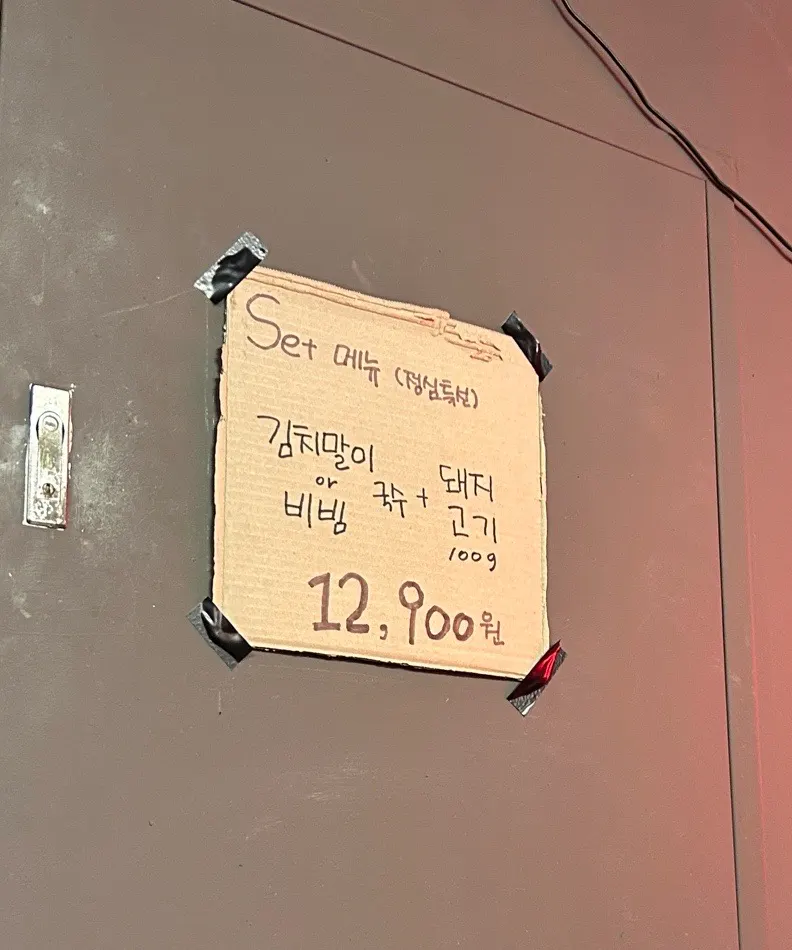 Set 메뉴 (점심특선)
김치말이
or
비빔
국수 +
돼지
고기
100g
12,900원